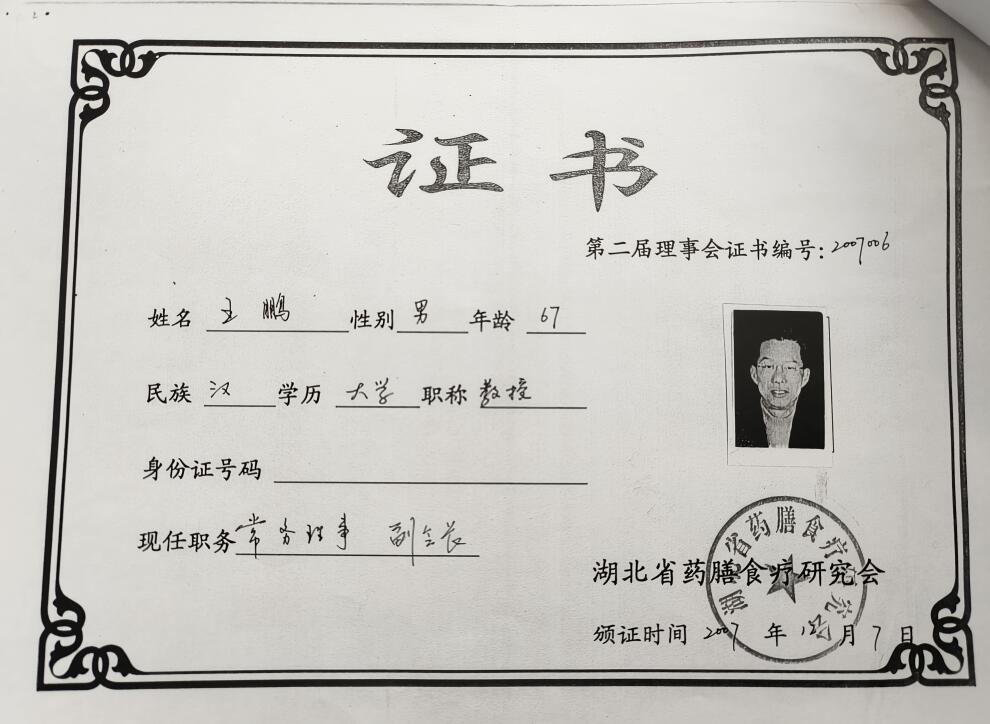 证书
第二届理事会证书编号:2007006
姓名 王鹏 性别 男 年龄 67
民族 汉 学历 大学 职称 教授
身份证号码
现任职务 常务理事 副会长
湖北省药膳食疗研究会
湖北省药膳食疗研究会
颁证时间 2007 年 月 7 日